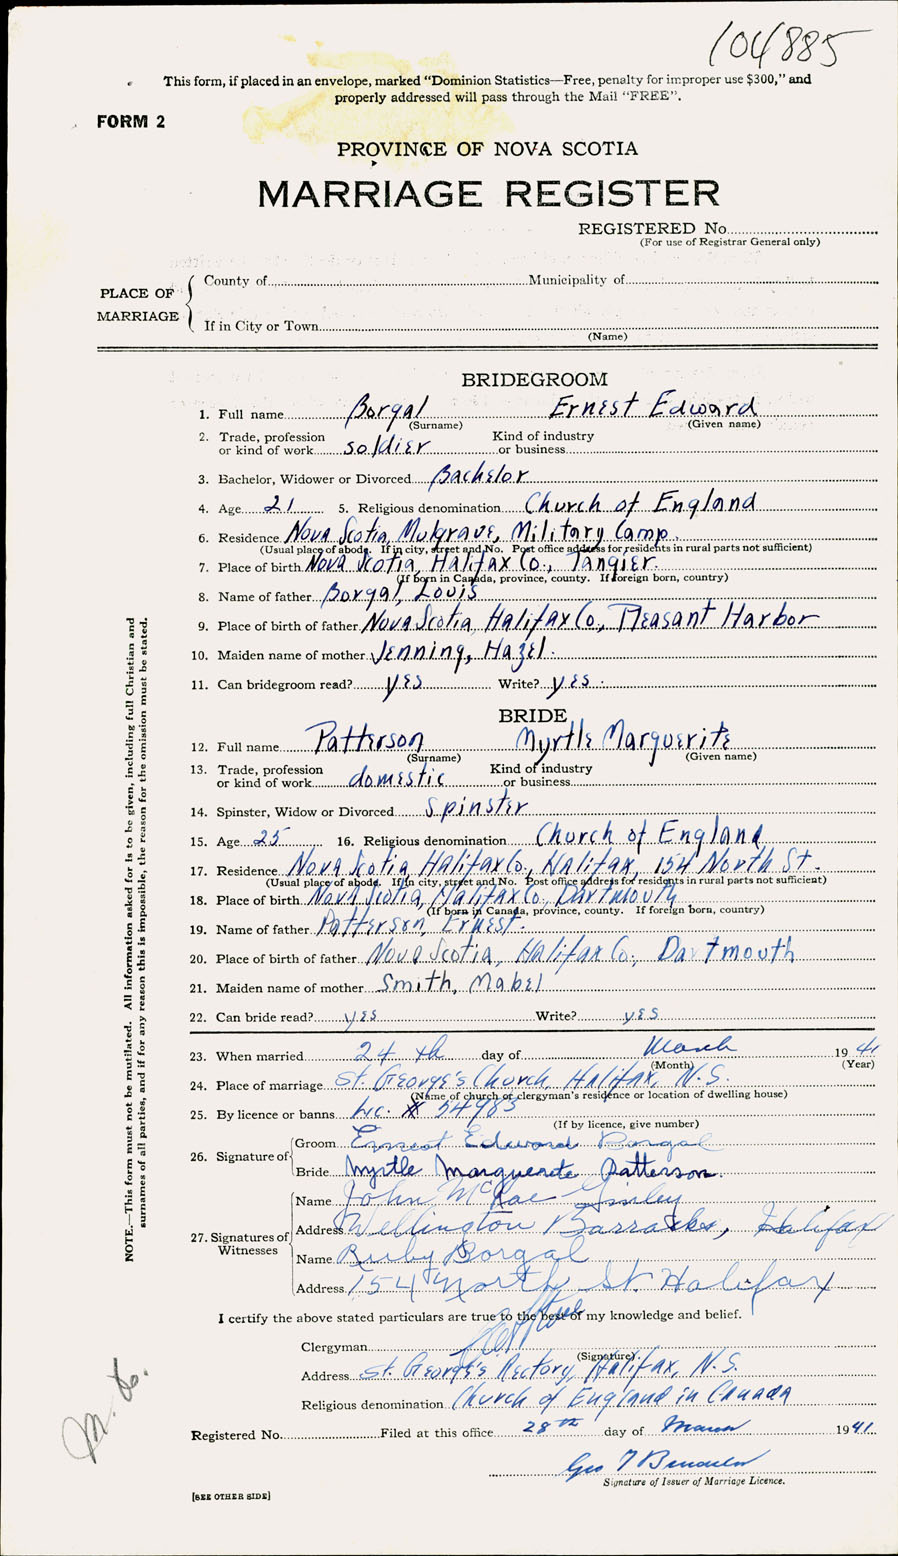 104885
This form, if placed in an envelope, marked "Dominion Statistics—Free, penalty for improper use $300," and
properly addressed will pass through the Mail "FREE".
FORM 2
PROVINCE OF NOVA SCOTIA
MARRIAGE REGISTER
REGISTERED No.
(For use of Registrar General only)
PLACE OF MARRIAGE
County of Municipality of
If in City or Town
(Name)
BRIDEGROOM
1. Full name Borgal Ernest Edward
(Surname) (Given name)
2. Trade, profession or kind of work soldier Kind of industry or business
3. Bachelor, Widower or Divorced Bachelor
4. Age 21 5. Religious denomination Church of England
6. Residence Nova Scotia, Mulgrave, Military Camp.
(Usual place of abode. If in city, street and No. Post office address for residents in rural parts not sufficient)
7. Place of birth Nova Scotia, Halifax Co., Tangier.
(If born in Canada, province, county. If foreign born, country)
8. Name of father Borgal, Louis
9. Place of birth of father Nova Scotia, Halifax Co., Pleasant Harbor
10. Maiden name of mother Jenning, Hazel.
11. Can bridegroom read? yes Write? yes.
BRIDE
12. Full name Patterson Myrtle Marguerite
(Surname) (Given name)
13. Trade, profession or kind of work domestic Kind of industry or business
14. Spinster, Widow or Divorced Spinster
15. Age 25 16. Religious denomination Church of England
17. Residence Nova Scotia, Halifax Co., Halifax, 154 North St.
(Usual place of abode. If in city, street and No. Post office address for residents in rural parts not sufficient)
18. Place of birth Nova Scotia, Halifax Co., Dartmouth
(If born in Canada, province, county. If foreign born, country)
19. Name of father Patterson, Ernest.
20. Place of birth of father Nova Scotia, Halifax Co., Dartmouth
21. Maiden name of mother Smith, Mabel
22. Can bride read? yes Write? yes
23. When married 24th day of March 1941
(Month) (Year)
24. Place of marriage St. George's Church, Halifax, N.S.
(Name of church or clergyman's residence or location of dwelling house)
25. By licence or banns Lic. # 54983
(If by licence, give number)
26. Signature of Groom Ernest Edward Borgal
Bride Myrtle Marguerete Patterson.
27. Signatures of Witnesses Name John McRae
Address Wellington Barracks, Halifax
Name Ruby Borgal
Address 154 North St. Halifax
I certify the above stated particulars are true to the best of my knowledge and belief.
Clergyman
(Signature)
Address St. George's Rectory, Halifax, N.S.
Religious denomination Church of England in Canada
Registered No. Filed at this office 28th day of March 1941.
Geo
Signature of Issuer of Marriage Licence.
[SEE OTHER SIDE]
NOTE.—This form must not be mutilated. All information asked for is to be given, including full Christian and
surnames of all parties, and if for any reason this is impossible, the reason for the omission must be stated.